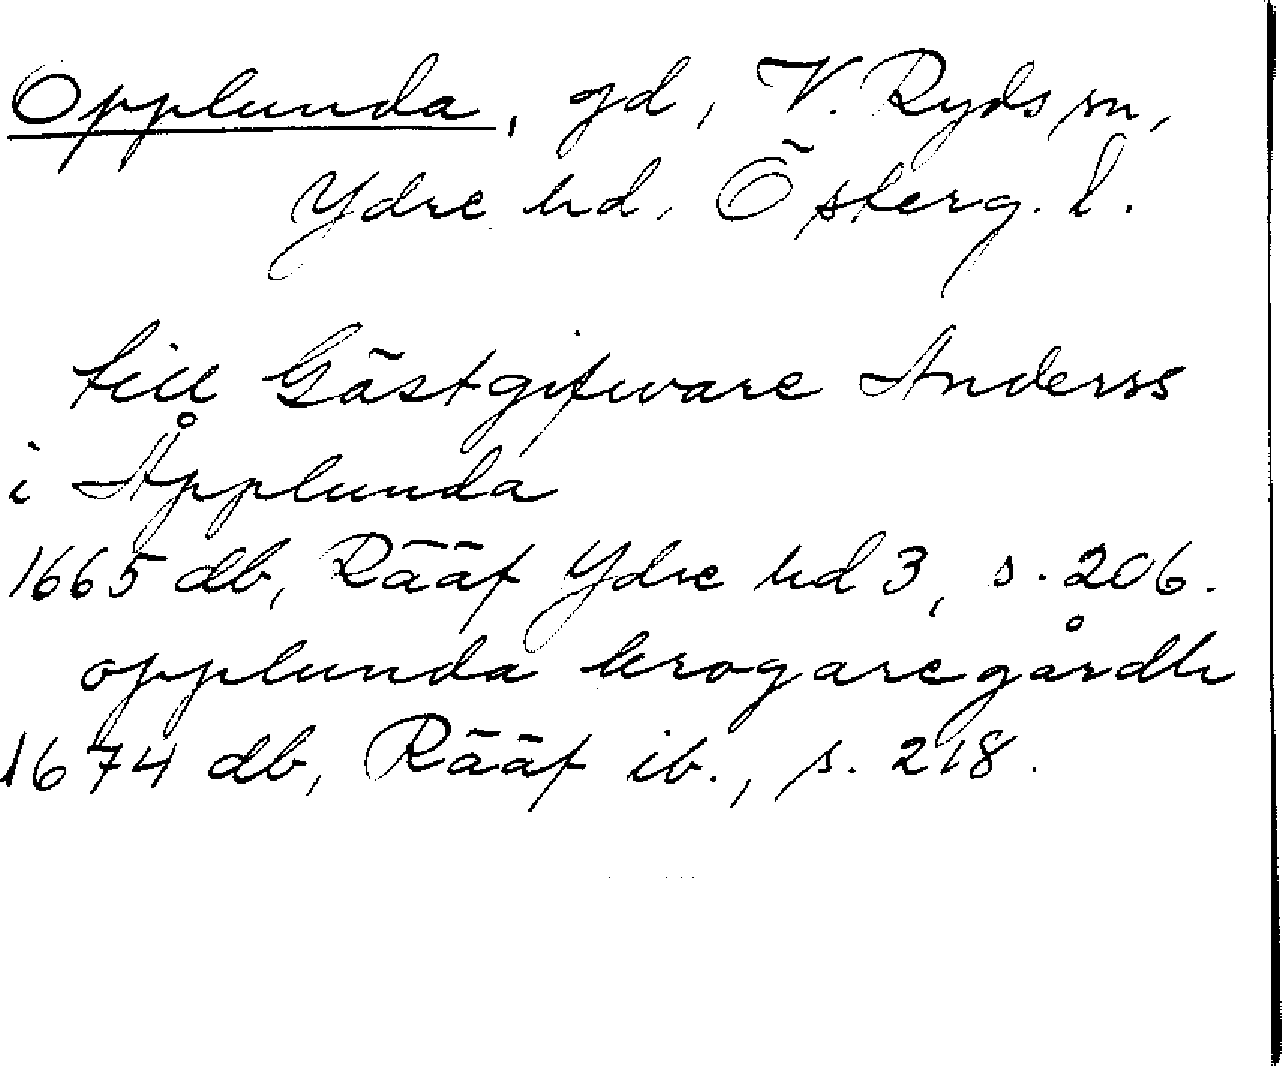 Opplunda, gd, V. Ryds sn,
Ydre hd, Österg. l.
till Gästgifware Anderss
i Åpplunda
1665 db, Rääf Ydre hd 3, s. 206.
opplunda krogaregårdh
1674 db, Rääf ib., s. 218.